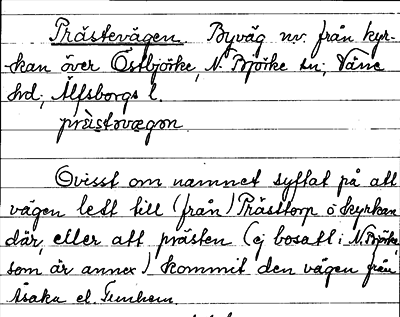 Prästevägen. Byväg n.v. från kyr-
kan över Östbjörke, N. Björke sn; Väne
hd, Älfsborgs l.
prästovægon.
Ovisst om namnet syftat på att
vägen lett till (från) Prästtorp o kyrkan
där, eller att prästen (ej bosatt i N. Björke,
som är annex) kommit den vägen från
Åsaka el. Trunhem.